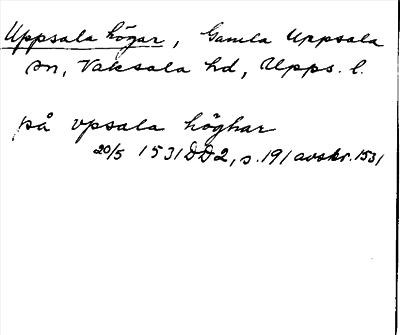 Uppsala högar, Gamla Uppsala
sn, Vaksala hd, Upps. l.
på vpsala höghar
20/5 1531 DD2, s. 191 avskr. 1531